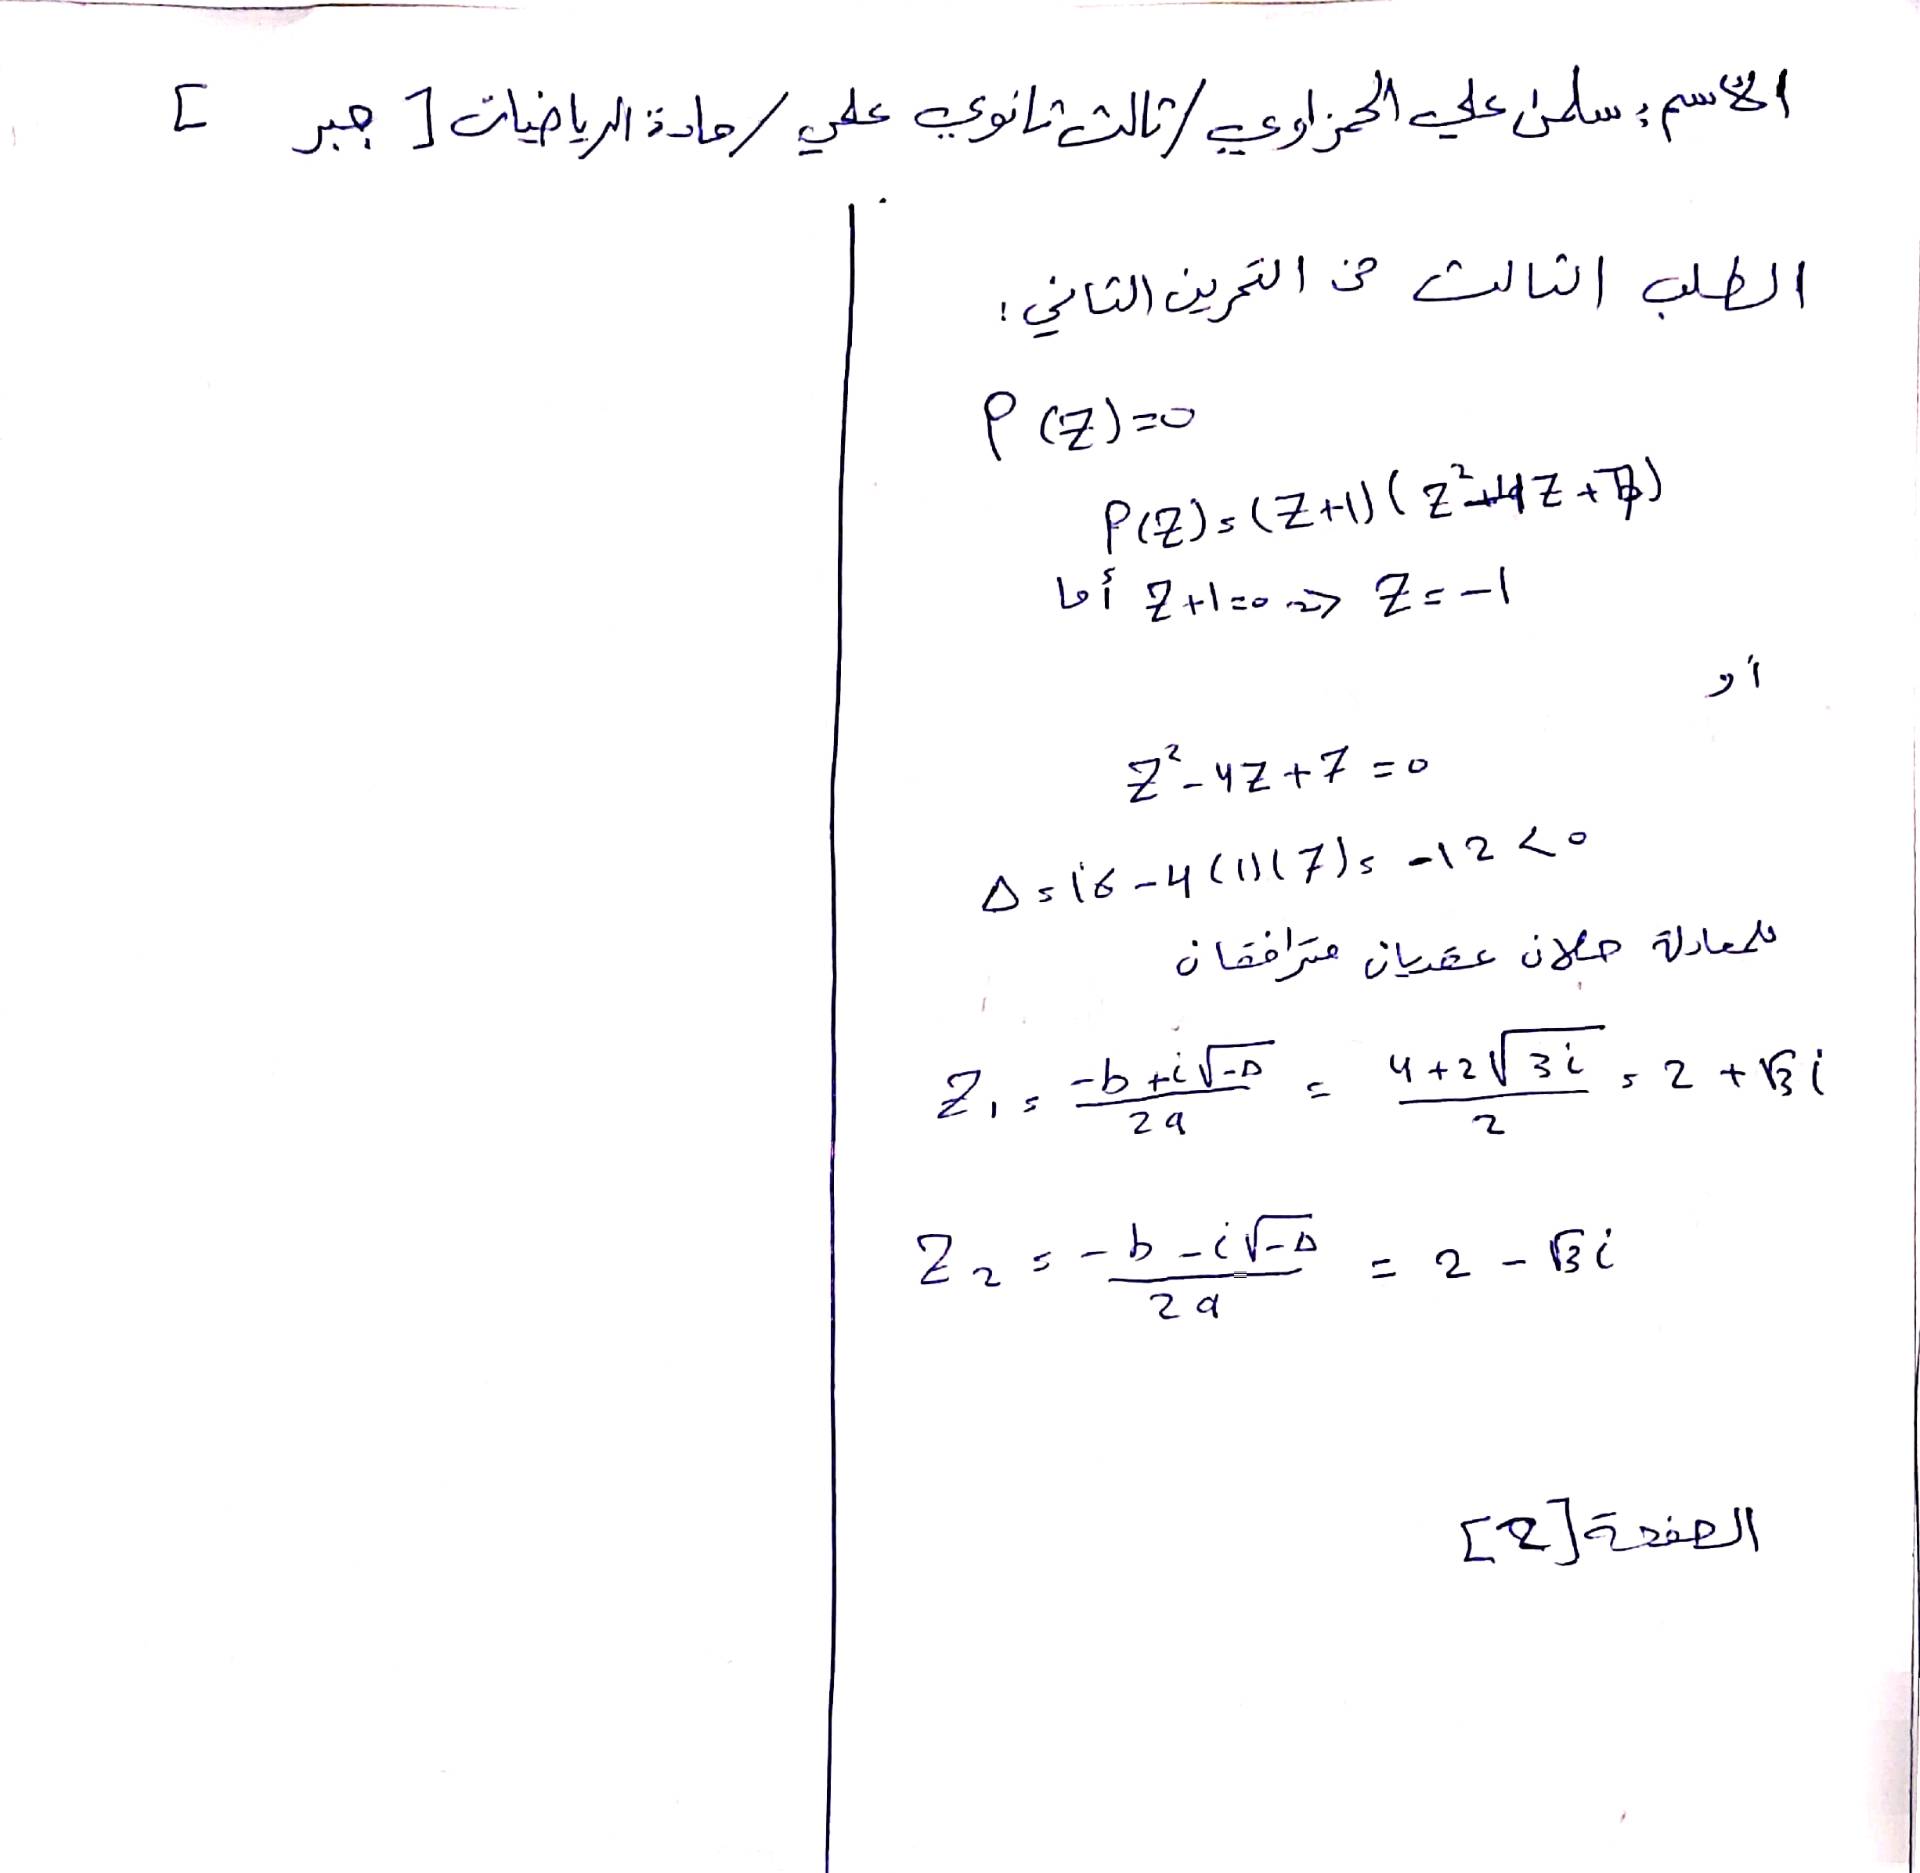 الأسم: سلمى علي الحمزاوي / ثالث ثانوي علمي / مادة الرياضيات [ جبر ]
الطلب الثالث من التمرين الثاني:
P(Z)=0
P(Z)=(Z+1)(Z²-4Z+7)
أما Z+1=0 => Z=-1
او
Z²-4Z+7=0
Δ=16-4(1)(7)=-12<0
للمعادلة حلان عقديان مترافقان
Z₁=(-b+i√-Δ)/2a = (4+2√3i)/2 = 2+√3i
Z₂=(-b-i√-Δ)/2a = 2-√3i
الصفحة [2]